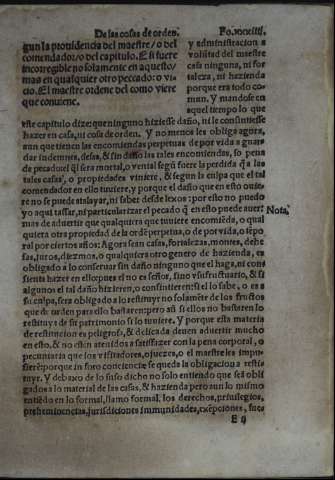 De las cosas de orden. Fo.xxxiiij.
gun la prouidencia del maestre/o del
comendador/o del capitulo. E si fuere
incorregible no solamente en aquesto/
mas en qualquier otro peccado: o vi
cio. El maestre ordene del como viere
que conuiene.
y administracion a
volũtad del maestre
casa ninguna, ni for
taleza, ni hazienda
porque era todo co-
mun. Y mandose en
aquel tiempo lo que
este capitulo dize: que ninguno hiziesse daño, ni le consintiesse
hazer en casa, ni cosa de orden. Y no menos les obliga agora,
aun que tienen las encomiendas perpetuas de por vida a guar
dar indemnes, desas, & sin daño las tales encomiendas, so pena
de pecado: el ql sera mortal, o venial segũ fuere la perdida q̃ a las
tales casas, o propiedades viniere, & segun la culpa que el tal
comendador en ello tuuiere, y porque el daño que en esto ouie-
re no se puede atalayar, ni saber desde lexos: por esto no puedo
yo aqui tassar, ni particularizar el pecado q̃ en esto puede auer
mas de aduertir que qualquiera que tuuiere encomiẽda, o qual
quiera otra propiedad de la ordẽ perpetua, o de por vida, o tẽpo
ral por ciertos años: Agora sean casas, fortalezas, montes, dehe
sas, juros, diezmos, o qualquiera otro genero de hazienda, es
obligado a lo conseruar sin daño ninguno que el haga, ni con
sienta hazer en ello: pues el no es señor, sino vsufructuario, & si
algunos el tal daño hizieren, o consintieren: si el lo sabe, o es a
su culpa, sera obligado a lo restituyr no solamẽte de los fructos
que de orden para ello bastaren: pero aũ si ellos no bastaren lo
restituya de su patrimonio si lo tuuiere. Y porque esta materia
de restitucion es peligrosa, & delicada deuen aduertir mucho
en esto, & no estẽ atenidos a satisfazer con la pena corporal, o
pecuniaria que los visitadores, o juezes, o el maestre les impu-
sierẽ: porque in foro conciencie se queda la obligacion a resti
tuyr. Y debaxo de lo suso dicho no solo entiendo que seã obli
gados a lo material de las casas, & hazienda pero aun lo mismo
entiẽdo en lo formal, llamo formal, los derechos, priuilegios,
prehemiencias, jurisdiciones immunidades, exẽpciones, fue
Nota.
E ij